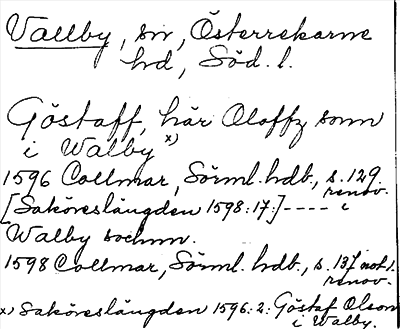 Vallby, sn, Österrekarne
hd, Söd. l.
Göstaff, här Oloffz sonn
i Walby x)
1596 Collmar, Sörml. hdb., s. 129.
renov.
[Saköreslängden 1598:17:] ---- i
Walby sochnn.
1598 Collmar, Sörml. hdb., s. 137 not 1.
renov.
x) Saköreslängden 1596:2: Göstaf Olson
i Walby.